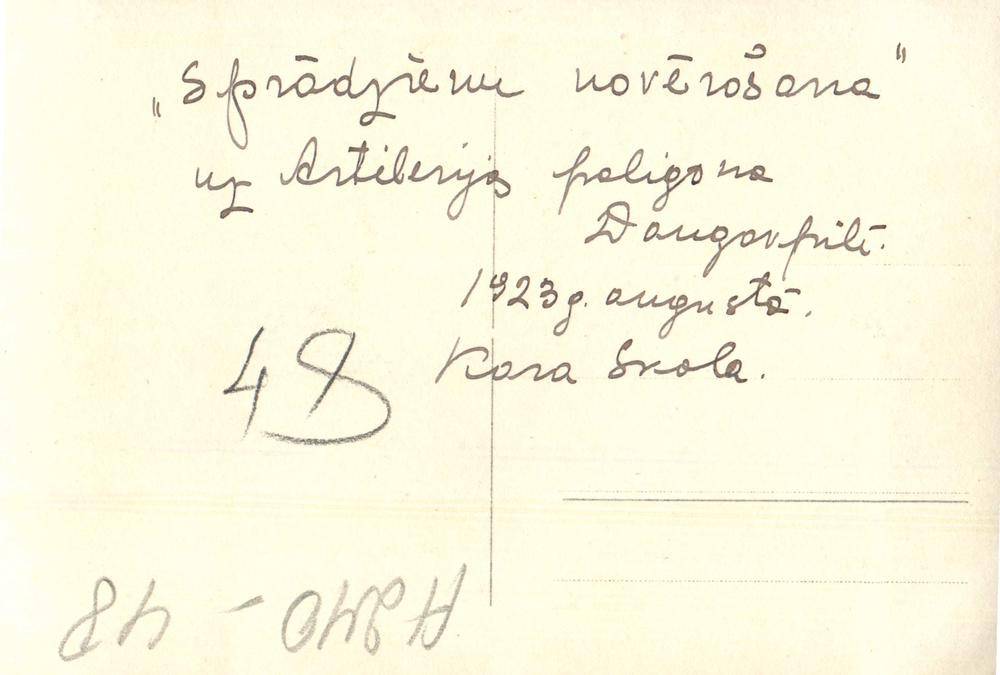 „Sprādzienu novērošana"
uz Artilerijas poligona
Daugavpilī.
1923 g. augustā.
Kara Skola.
48
A240 - 48